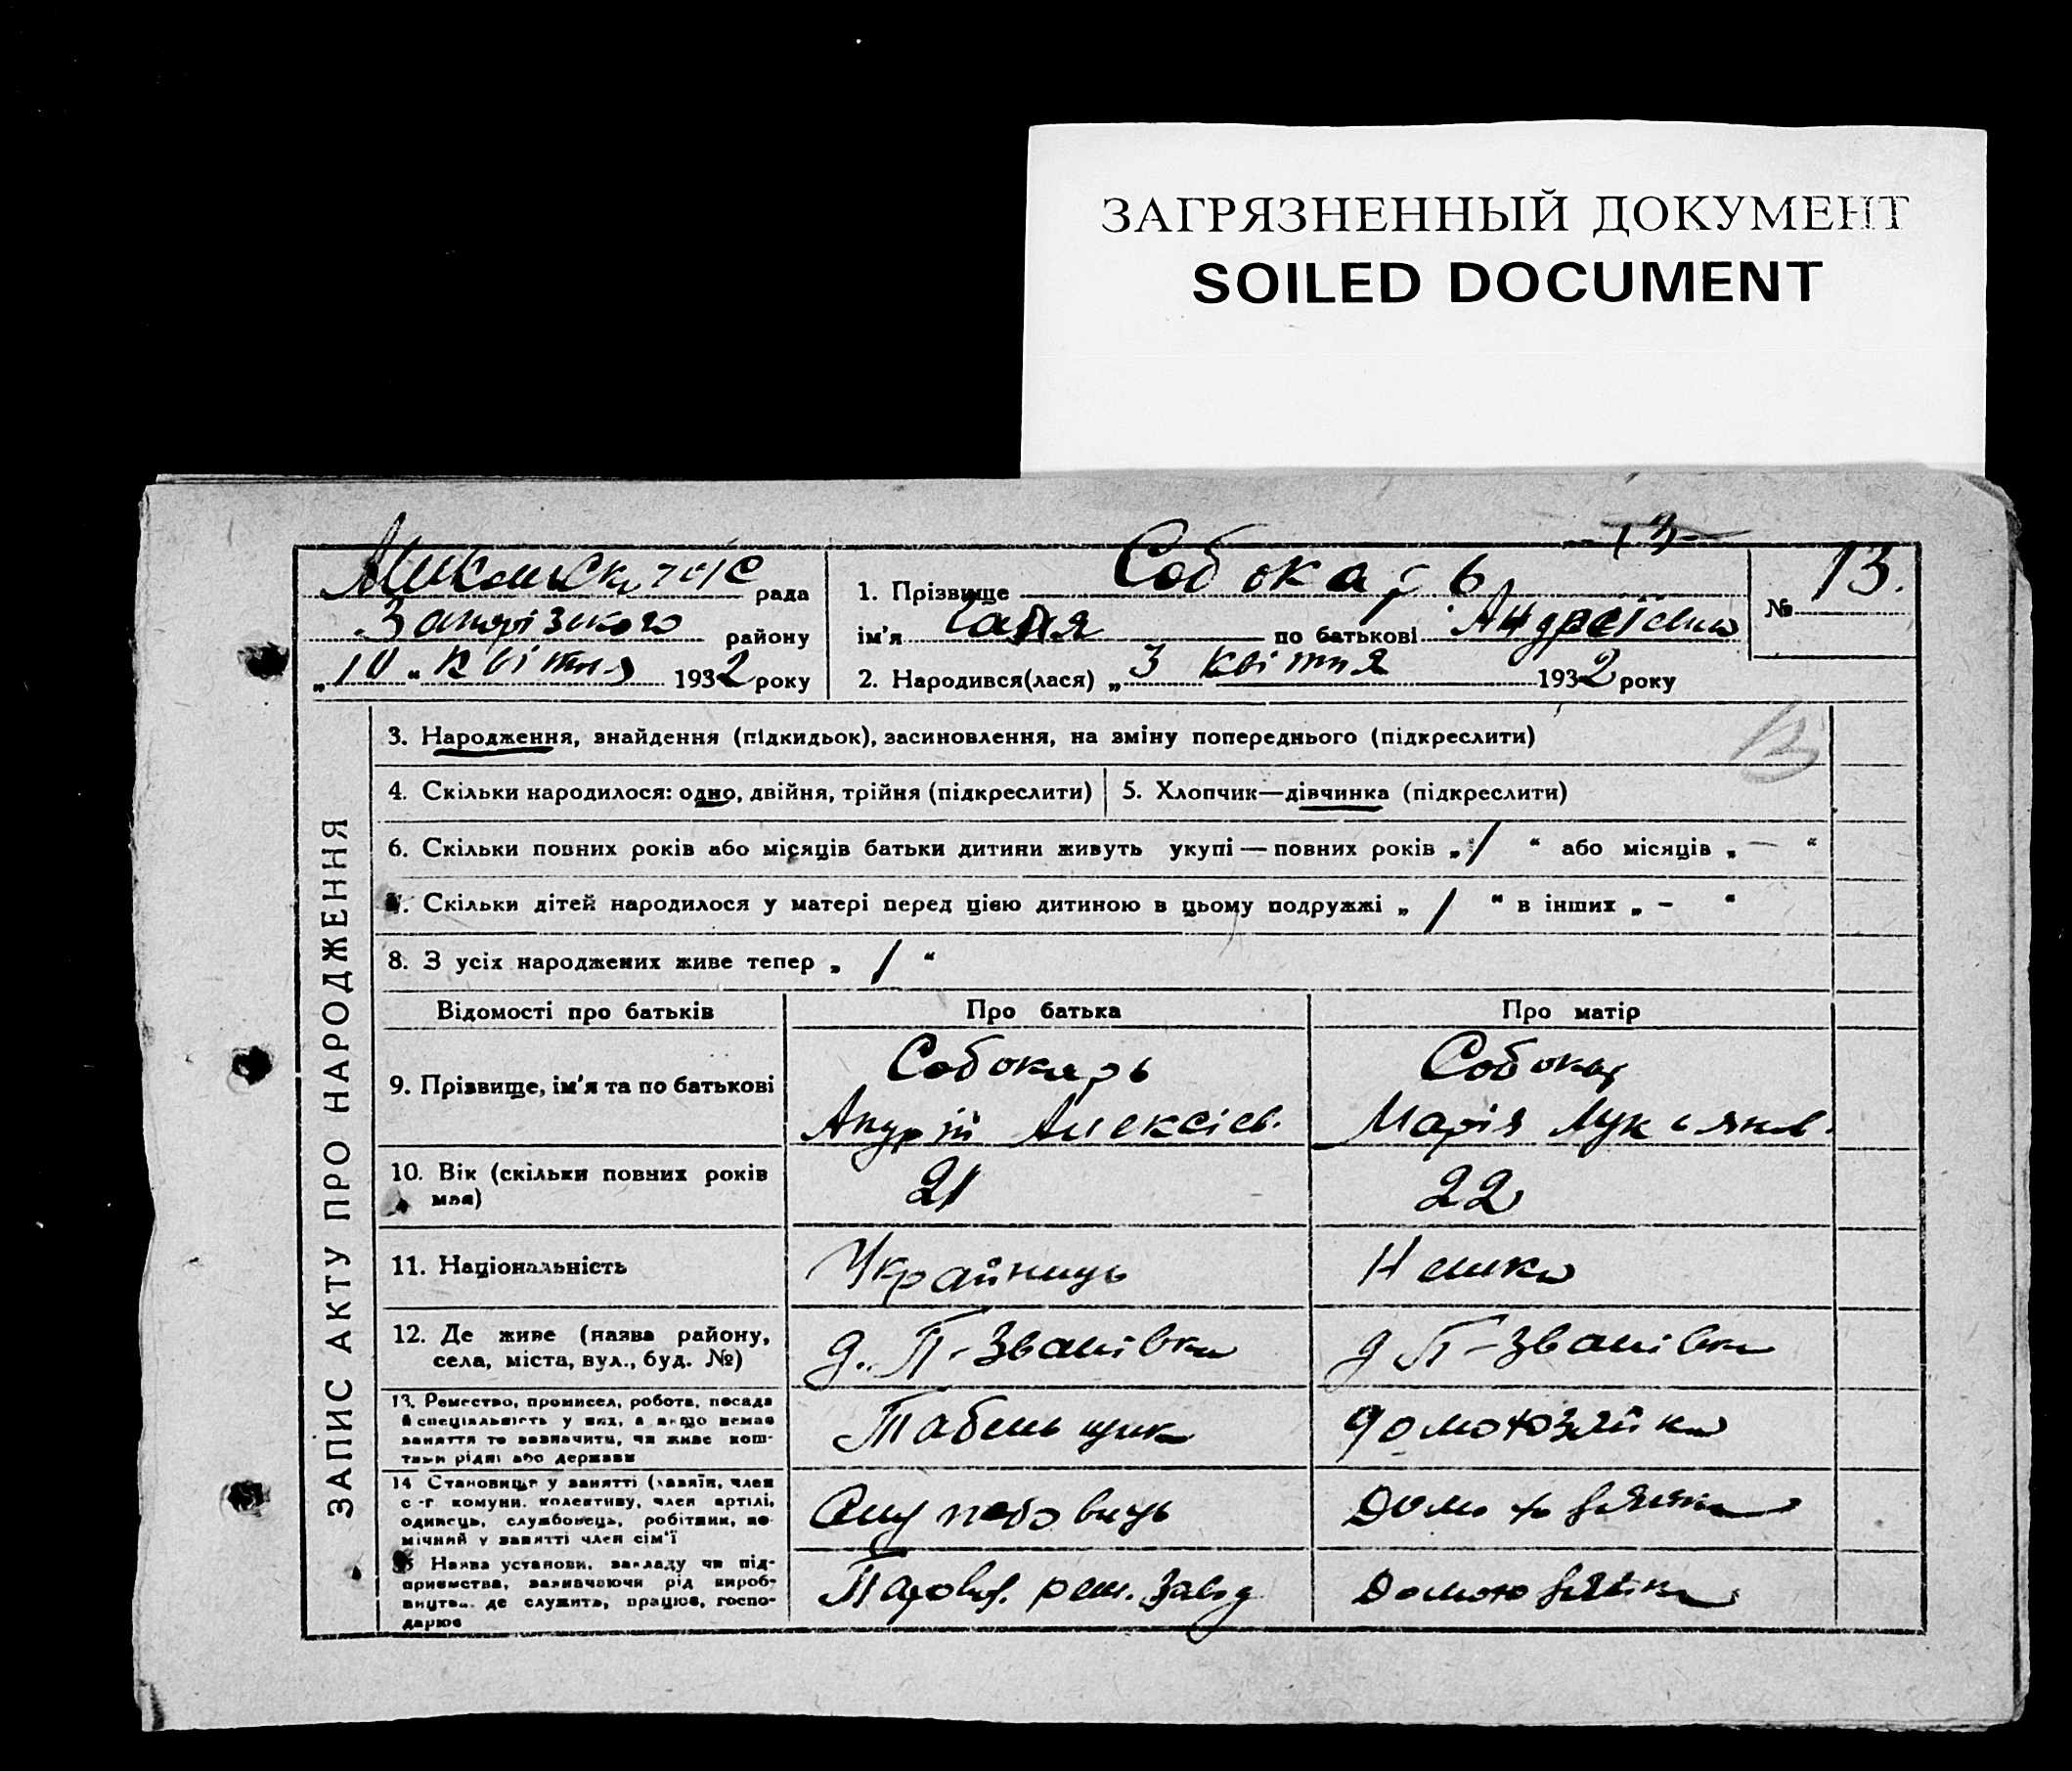 ЗАГРЯЗНЕННЫЙ ДОКУМЕНТ
SOILED DOCUMENT
13
рада
Запорізького району
„10“ квітня 1932 року
1. Прізвище Собокарь
ім'я по батькові Андреївна
2. Народився(лася) „3 квітня 1932 року
№ 13.
ЗАПИС АКТУ ПРО НАРОДЖЕННЯ
3. Народження, знайдення (підкидьок), засиновлення, на зміну попереднього (підкреслити)
4. Скільки народилося: одно, двійня, трійня (підкреслити)
5. Хлопчик—дівчинка (підкреслити)
6. Скільки повних років або місяців батьки дитини живуть укупі — повних років „1“ або місяців „—“
7. Скільки дітей народилося у матері перед цією дитиною в цьому подружжі „1“ в інших „-“
8. З усіх народжених живе тепер „1“
Відомості про батьків
Про батька
Про матір
9. Прізвище, ім'я та по батькові
Собокарь
Андрій Алексієв.
Собокар
Марія Лукьянов.
10. Вік (скільки повних років має)
21
22
11. Національність
Українць
Немка
12. Де живе (назва району,
села, міста, вул., буд. №)
д. П-Званівка
д П-Званівка
13. Ремество, промисел, робота, посада
й спеціяльність у них, а якщо немає
заняття то зазначити, чи живе кош-
тами рідні або держави
Табельщик
домохозяйка
14 Становище у занятті (хазяїн, член
с.-г. комуни, колективу, член артілі,
одинець, службовець, робітник, по-
мічний у занятті член сім'ї
Службовець
Домохозяйка
15 Назва установи, закладу чи під-
приємства, зазначаючи рід вироб-
ництва, де служить, працює, госпо-
дарює
Паровоз. рем. завод
Домохозяйка